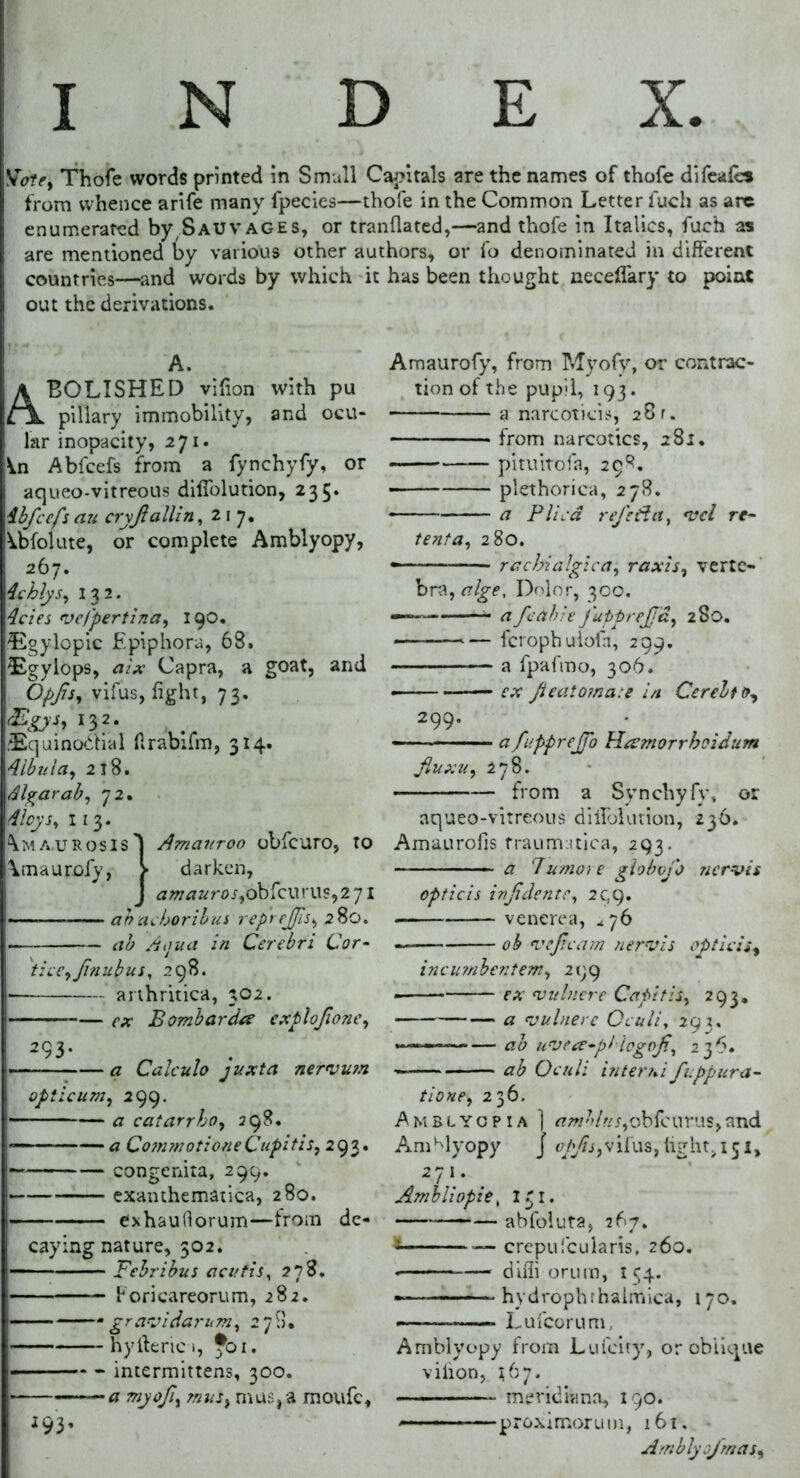 INDEX.
Note, Thoſe words printed in Small Capitals are the names of thoſe diſeaſes
from whence ariſe many ſpecies—thoſe in the Common Letter ſuch as are
enumerated by SAUVAGES, or tranſlated,—and thoſe in Italics, ſuch as
are mentioned by various other authors, or ſo denominated in different
countries—and words by which it has been thought neceſſary to point
out the derivations.
A.
ABOLISHED viſion with pu
pillary immobility, and ocu-
lar inopacity, 271.
An Abſceſs from a ſynchyſy, or
aqueo-vitreous diſſolution, 235.
Abſceſs au cryſtallin, 217.
Abſolute, or complete Amblyopy,
267.
Achlys, 132.
Acies veſpertina, 190.
Ægylopic Epiphora, 68.
Ægylops, aix Capra, a goat, and
Opſis, viſus, ſight, 73.
Ægys, 132.
Æquinoctial ſtrabiſm, 314.
Albula, 218.
Algarab, 72.
Aloys, 113.
AMAUROSIS } Amauroo obſcuro, to
Amauroſy, } darken,
} amauros, obſcurus, 271
——— ab achoribus repreſſis, 280.
——— ab Aqua in Cerebri Cor-
tice, ſinubus, 298.
——— arthritica, 302.
——— ex Bombardæ exploſione,
293.
——— a Calculo juxta nervum
opticum, 299.
——— a catarrho, 298.
——— a Commotione Capitis, 293.
——— congenita, 299.
——— exanthematica, 280.
——— exhauſtorum—from de-
caying nature, 302.
——— Febribus acutis, 278.
——— Foricareorum, 282.
——— gravidarum, 278.
——— hyſterica, 301.
——— - intermittens, 300.
——— a myoſi, mus, mus, a mouſe,
193.
Amauroſy, from Myoſy, or contrac-
tion of the pupil, 193.
——— a narcoticis, 281.
——— from narcotics, 281.
——— pituitoſa, 298.
——— plethorica, 278.
——— a Plicâ reſecta, vel re-
tenta, 280.
——— rachialgica, raxis, verte-
bra, alge, Dolor, 300.
——— a ſcabie ſuppreſſâ, 280.
——— ſcrophuloſa, 299.
——— a ſpaſmo, 306.
——— ex ſteatomate in Cerebro,
299.
——— a ſuppreſſo Hæmorrhoidum
fluxu, 278.
——— from a Synchyſy, or
aqueo-vitreous diſſolution, 236.
Amauroſis traumatica, 293.
——— a Tumore globoſo nervis
opticis inſidente, 299.
——— venerea, 276
——— ob veſicam nervis opticis,
incumbentem, 299
——— ex vulnere Capitis, 293.
——— a vulnere Oculi, 293.
——— ab uveæ-phlogoſi, 236.
——— ab Oculi interni ſuppura-
tione, 236.
AMBLYOPIA } amblus, obſcurus, and
Amblyopy } opſis, viſus, ſight, 151,
271.
Ambliopie, 151.
——— abſoluta, 267.
——— crepuſcularis, 260.
——— diſſi orum, 154.
——— hydrophthalmica, 170.
——— Luſcorum,
Amblyopy from Luſcity, or oblique
viſion, 167.
——— meridiana, 190.
——— proximorum, 161.
Amblyoſmas,